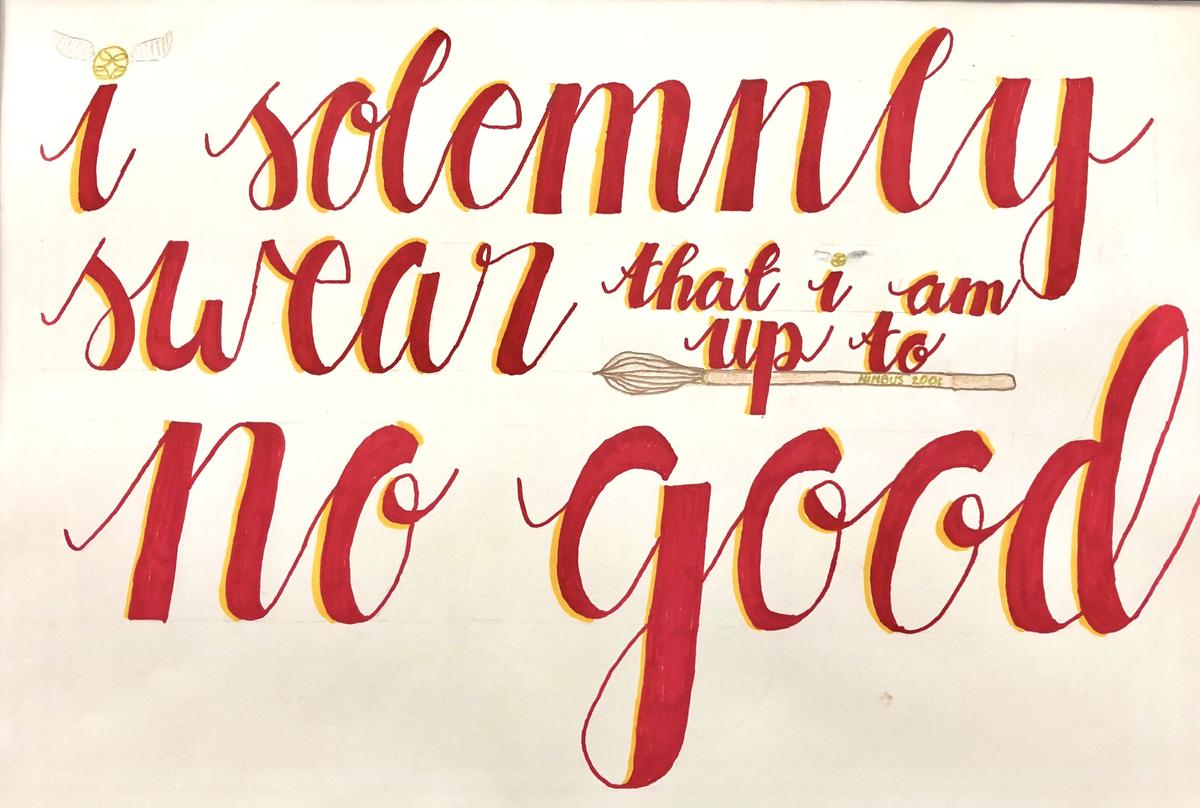 i solemnly
swear that i am
up to
NIMBUS 2001
no good